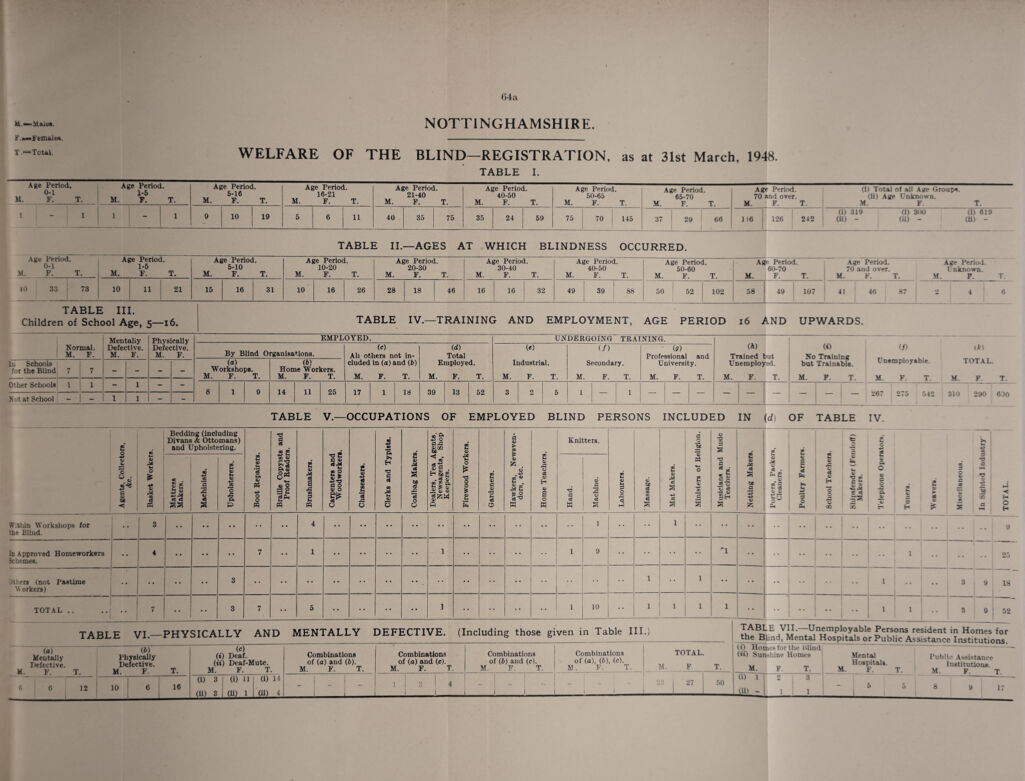 64a
M.—Males.
F.—Females.
T.—Total.
NOTTINGHAMSHIRE.
WELFARE OF THE BLIND—REGISTRATION, as at 31st March, 1948.
TABLE I.
Age Period. 0-1 M. F. T. | Age Period. 1-5 M. F. T. | Age Period. 5-16 M. F. T. | Age Period. 16-21 M. F. T. | Age Period. 21-40 M. F. T. | Age Period. 40-50 M. F. T. | Age Period. 50-65 M. F. T. | Age Period. 65-70 M. F. T. | Age Period. 70 and over. M. F. T. | (i) Total of all Age Groups. (ii) Age Unknown. M. F. T.
1 - 1 | 1 - 1 | 9 10 19 | 5 6 11 | 40 35 75 | 35 24 59 | 75 70 145 | 37 29 66 | 116 126 242 | (i) 319 (i) 300 (i) 619
(ii) - (ii) - (ii) -
TABLE II.—AGES AT WHICH BLINDNESS OCCURRED.
Age Period. 0-1 M. F. T. | Age Period. 1-5 M. F. T. | Age Period. 5-10 M. F. T. | Age Period. 10-20 M. F. T. | Age Period. 20-30 M. F. T. | Age Period. 30-40 M. F. T. | Age Period. 40-50 M. F. T. | Age Period. 50-60 M. F. T. | Age Period. 60-70 M. F. T. | Age Period. 70 and over. M. F. T. | Age Period. Unknown. M. F. T.
40 33 73 | 10 11 21 | 15 16 31 | 10 16 26 | 28 18 46 | 16 16 32 | 49 39 88 | 50 52 102 | 58 49 107 | 41 46 87 | 2 4 6
TABLE III.
Children of School Age, 5—16.
Normal. M. F. | Mentally Defective. M. F. | Physically Defective. M. F.
In Schools for the Blind 7 7 - - - -
Other Schools 1 1 - 1 - -
Not at School - - 1 1 - -
TABLE IV.—TRAINING AND EMPLOYMENT, AGE PERIOD 16 AND UPWARDS.
EMPLOYED. | UNDERGOING TRAINING.
By Blind Organisations.
(a) Workshops. M. F. T. | (b) Home Workers. M. F. T. | (c) All others not included in (a) and (b) M. F. T. | (d) Total Employed. M. F. T. | (e) Industrial. M. F. T. | (f) Secondary. M. F. T. | (g) Professional and University. M. F. T. | (h) Trained but Unemployed. M. F. T. | (i) No Training but Trainable. M. F. T. | (j) Unemployable. M. F. T. | (k) TOTAL. M. F. T.
8 1 9 | 14 11 25 | 17 1 18 | 39 13 52 | 3 2 5 | 1 — 1 | — — — | — — — | — — — | 267 275 542 | 310 290 600
TABLE V.—OCCUPATIONS OF EMPLOYED BLIND PERSONS INCLUDED IN (d) OF TABLE IV.
Agents, Collectors, &c. | Basket Workers. | Bedding (including Divans & Ottomans) and Upholstering. Mattress Makers. | Machinists. | Upholsterers. | Boot Repairers. | Braille Copyists and Proof Readers. | Brushmakers. | Carpenters and Woodworkers. | Chairseaters. | Clerks and Typists. | Coalbag Makers. | Dealers, Tea Agents, Newsagents, Shop Keepers. | Firewood Workers. | Gardeners. | Hawkers, Newsvendors, etc. | Home Teachers. | Knitters. Hand. | Machine. | Labourers. | Massage. | Mat Makers. | Ministers of Religion. | Musicians and Music Teachers. | Netting Makers. | Porters, Packers, Cleaners. | Poultry Farmers. | School Teachers. | Shipsfender (Fendoff) Makers. | Telephone Operators. | Tuners. | Weavers. | Miscellaneous. | In Sighted Industry | TOTAL
Within Workshops for the Blind. .. 3 .. .. .. .. .. 4 .. .. .. .. .. .. .. .. .. .. 1 .. .. 1 .. .. .. .. .. .. .. .. .. .. .. .. 9
In Approved Homeworkers Schemes. .. 4 .. .. .. 7 .. 1 .. .. .. .. 1 .. .. .. .. 1 9 .. .. .. .. *1 .. .. .. .. .. .. 1 .. .. .. 25
Others (not Pastime Workers) .. .. .. .. 3 .. .. .. .. .. .. .. .. .. .. .. .. .. .. .. 1 .. 1 .. .. .. .. .. .. 1 .. .. 3 9 18
TOTAL .. .. .. 7 .. .. 3 7 .. 5 .. .. .. .. 1 .. .. .. .. 1 10 .. 1 1 1 1 .. .. .. .. .. 1 1 .. 3 9 52
TABLE VI.—PHYSICALLY AND MENTALLY DEFECTIVE. (Including those given in Table III.)
(a) Mentally Defective. M. F. T. | (b) Physically Defective. M. F. T. | (c) (i) Deaf. (ii) Deaf-Mute. M. F. T. | Combinations of (a) and (b). M. F. T. | Combinations of (a) and (c). M. F. T. | Combinations of (b) and (c). M. F. T. | Combinations of (a), (b), (c). M. F. T. | TOTAL. M. F. T.
6 6 12 | 10 6 16 | (i) 3 (i) 11 (i) 14 | - - - | 1 3 4 | - - - | - - - | 23 27 50
(ii) 3 (ii) 1 (ii) 4
TABLE VII.—Unemployable Persons resident in Homes for the Blind, Mental Hospitals or Public Assistance Institutions.
(i) Homes for the Blind (ii) Sunshine Homes M. F. T. | Mental Hospitals. M. F. T. | Public Assistance Institutions. M. F. T.
(i) 1 2 3 | - 5 5 | 8 9 17
(ii) - 1 1